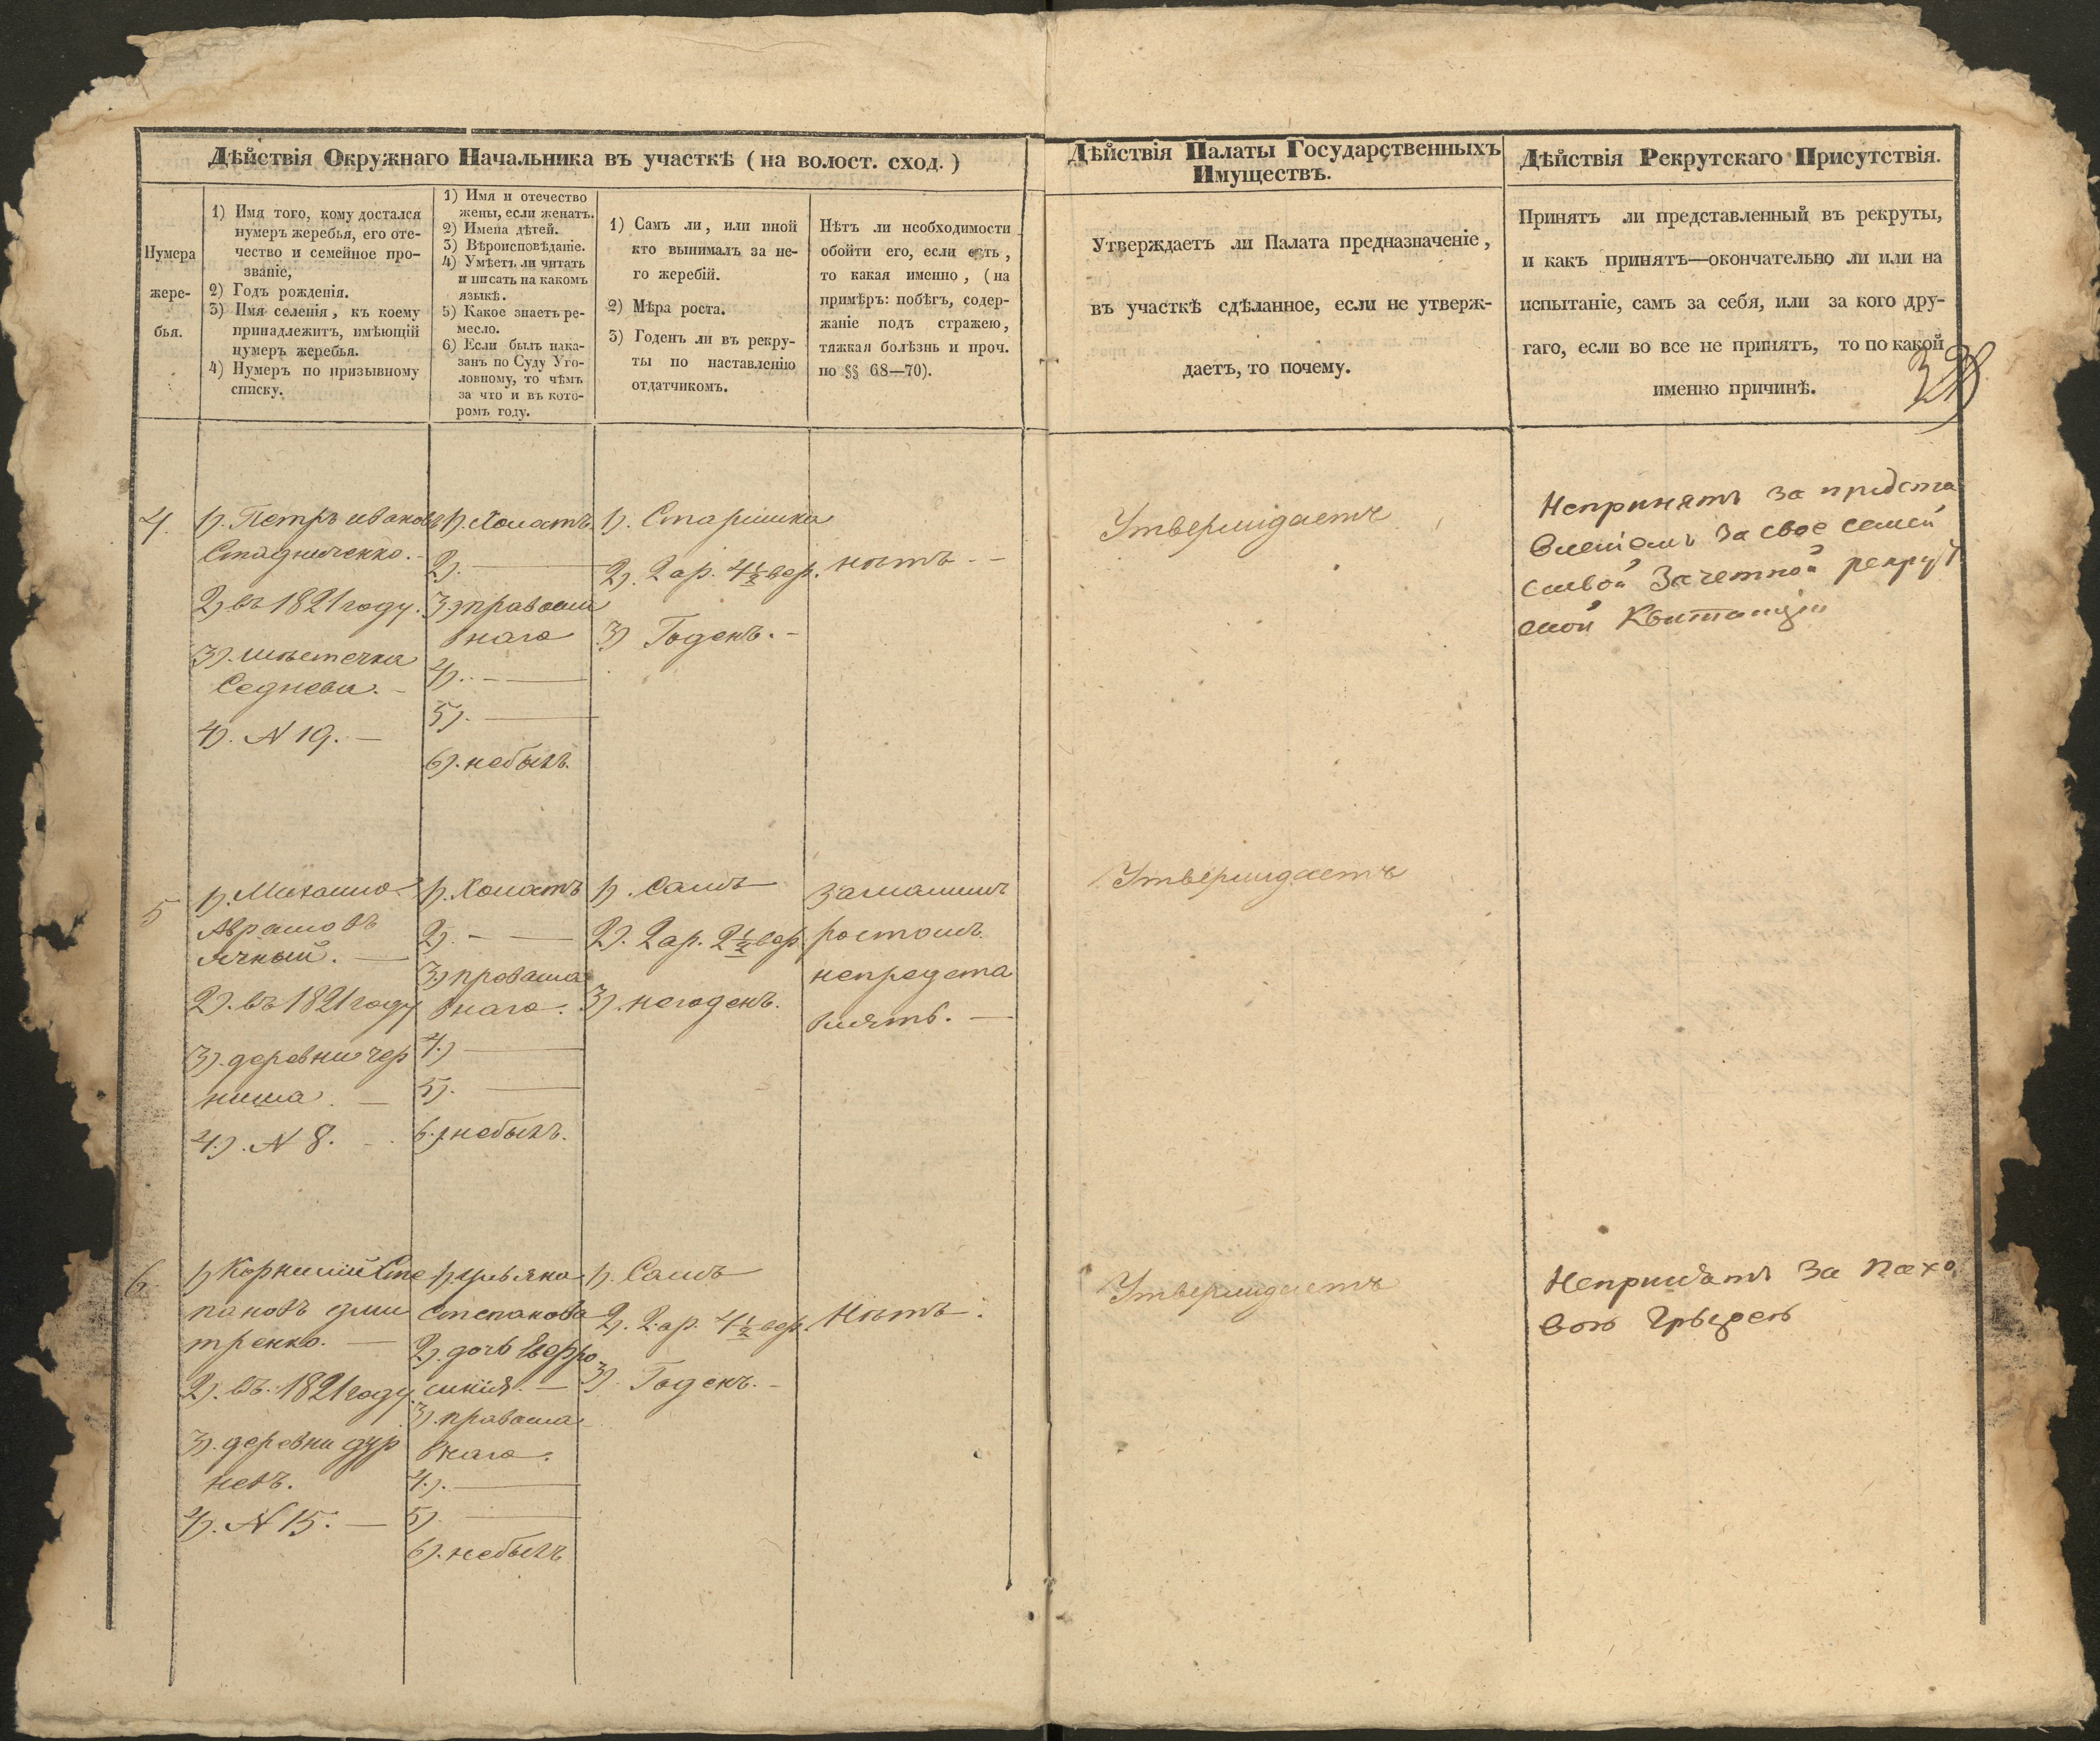 Дѣйствія Окружнаго Начальника въ участкѣ (на волост. сход.)
Нумера
жере-
бья.
1) Имя того, кому достался
нумеръ жеребья, его оте-
чество и семейное про-
званіе,
2) Годъ рожденія.
3) Имя селенія, къ коему
принадлежитъ, имѣющій
нумеръ жеребья.
4) Нумеръ по призывному
списку.
1) Имя и отечество
жены, если женатъ.
2) Имена дѣтей.
3) Вѣроисповѣданіе.
4) Умѣетъ ли читать
и писать на какомъ
языкѣ.
5) Какое знаетъ ре-
месло.
6) Если былъ нака-
занъ по Суду Уго-
ловному, то чѣмъ
за что и въ кото-
ромъ году.
1) Самъ ли, или иной
кто вынималъ за не-
го жеребій.
2) Мѣра роста.
3) Годенъ ли въ рекру-
ты по наставленію
отдатчикомъ.
Нѣтъ ли необходимости
обойти его, если есть,
то какая именно, (на
примѣръ: побѣгъ, содер-
жаніе подъ стражею,
тяжкая болѣзнь и проч.
по §§ 68—70).
Дѣйствія Палаты Государственныхъ
Имуществъ.
Утверждаетъ ли Палата предназначеніе,
въ участкѣ сдѣланное, если не утверж-
даетъ, то почему.
Дѣйствія Рекрутскаго Присутствія.
Принятъ ли представленный въ рекруты,
и какъ принятъ—окончательно ли или на
испытаніе, самъ за себя, или за кого дру-
гаго, если во все не принятъ, то по какой
именно причинѣ.
4.
1). Петръ ивановъ
Стадниченко. -
2) въ 1821 году.
3). мѣстечка
Седнева. -
4). N 19. —
1). Холостъ.
2). —
3) правосла
внаго
4). —
5). —
6). небылъ.
1). Старшина
2). 2 ар. 4½ вер.
3) Годенъ. -
нѣтъ. -
Утверждаетъ
Непринятъ за предста
вленіемъ за свое семей
ство Зачетной рекрут
ской Квитанціи
5
1). Михайло
Аврамовъ
Ячный. —
2). въ 1821 году
3). деревни чер
ниша. —
4). N 8. -
1). Холостъ
2). - —
3) правосла
внаго.
4.) —
5). —
6.) небылъ.
1). Самъ
2). 2 ар. 2½ вер.
3). негоденъ.
замалымъ
ростомъ
непредста
влять. —
Утверждаетъ
6
1) Корнилій Сте
пановъ дми
тренко. —
2). въ 1821 году.
3). деревни дур
невъ.
4). N 15. —
1). ульяна
степанова
2). дочь Евфро
синія. —
3). правосла
внаго.
4.). —
5). —
6). небылъ
1). Самъ
2). 2 ар. 4½ вер.
3). Годенъ. -
Нѣтъ.
Утверждаетъ
Непринятъ за пахо
вою грыжею